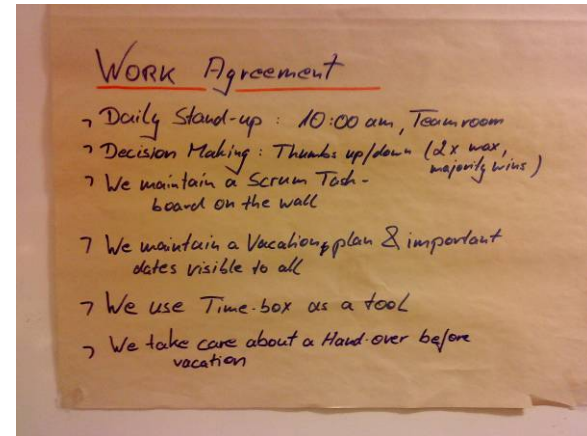 Work Agreement
Daily Stand-up : 10:00 am, Teamroom
Decision Making : Thumbs up/down (2x max,
majority wins)
We maintain a Scrum Task-
board on the wall
We maintain a Vacation plan & important
dates visible to all
We use Time-box as a tool
We take care about a Hand-over before
vacation